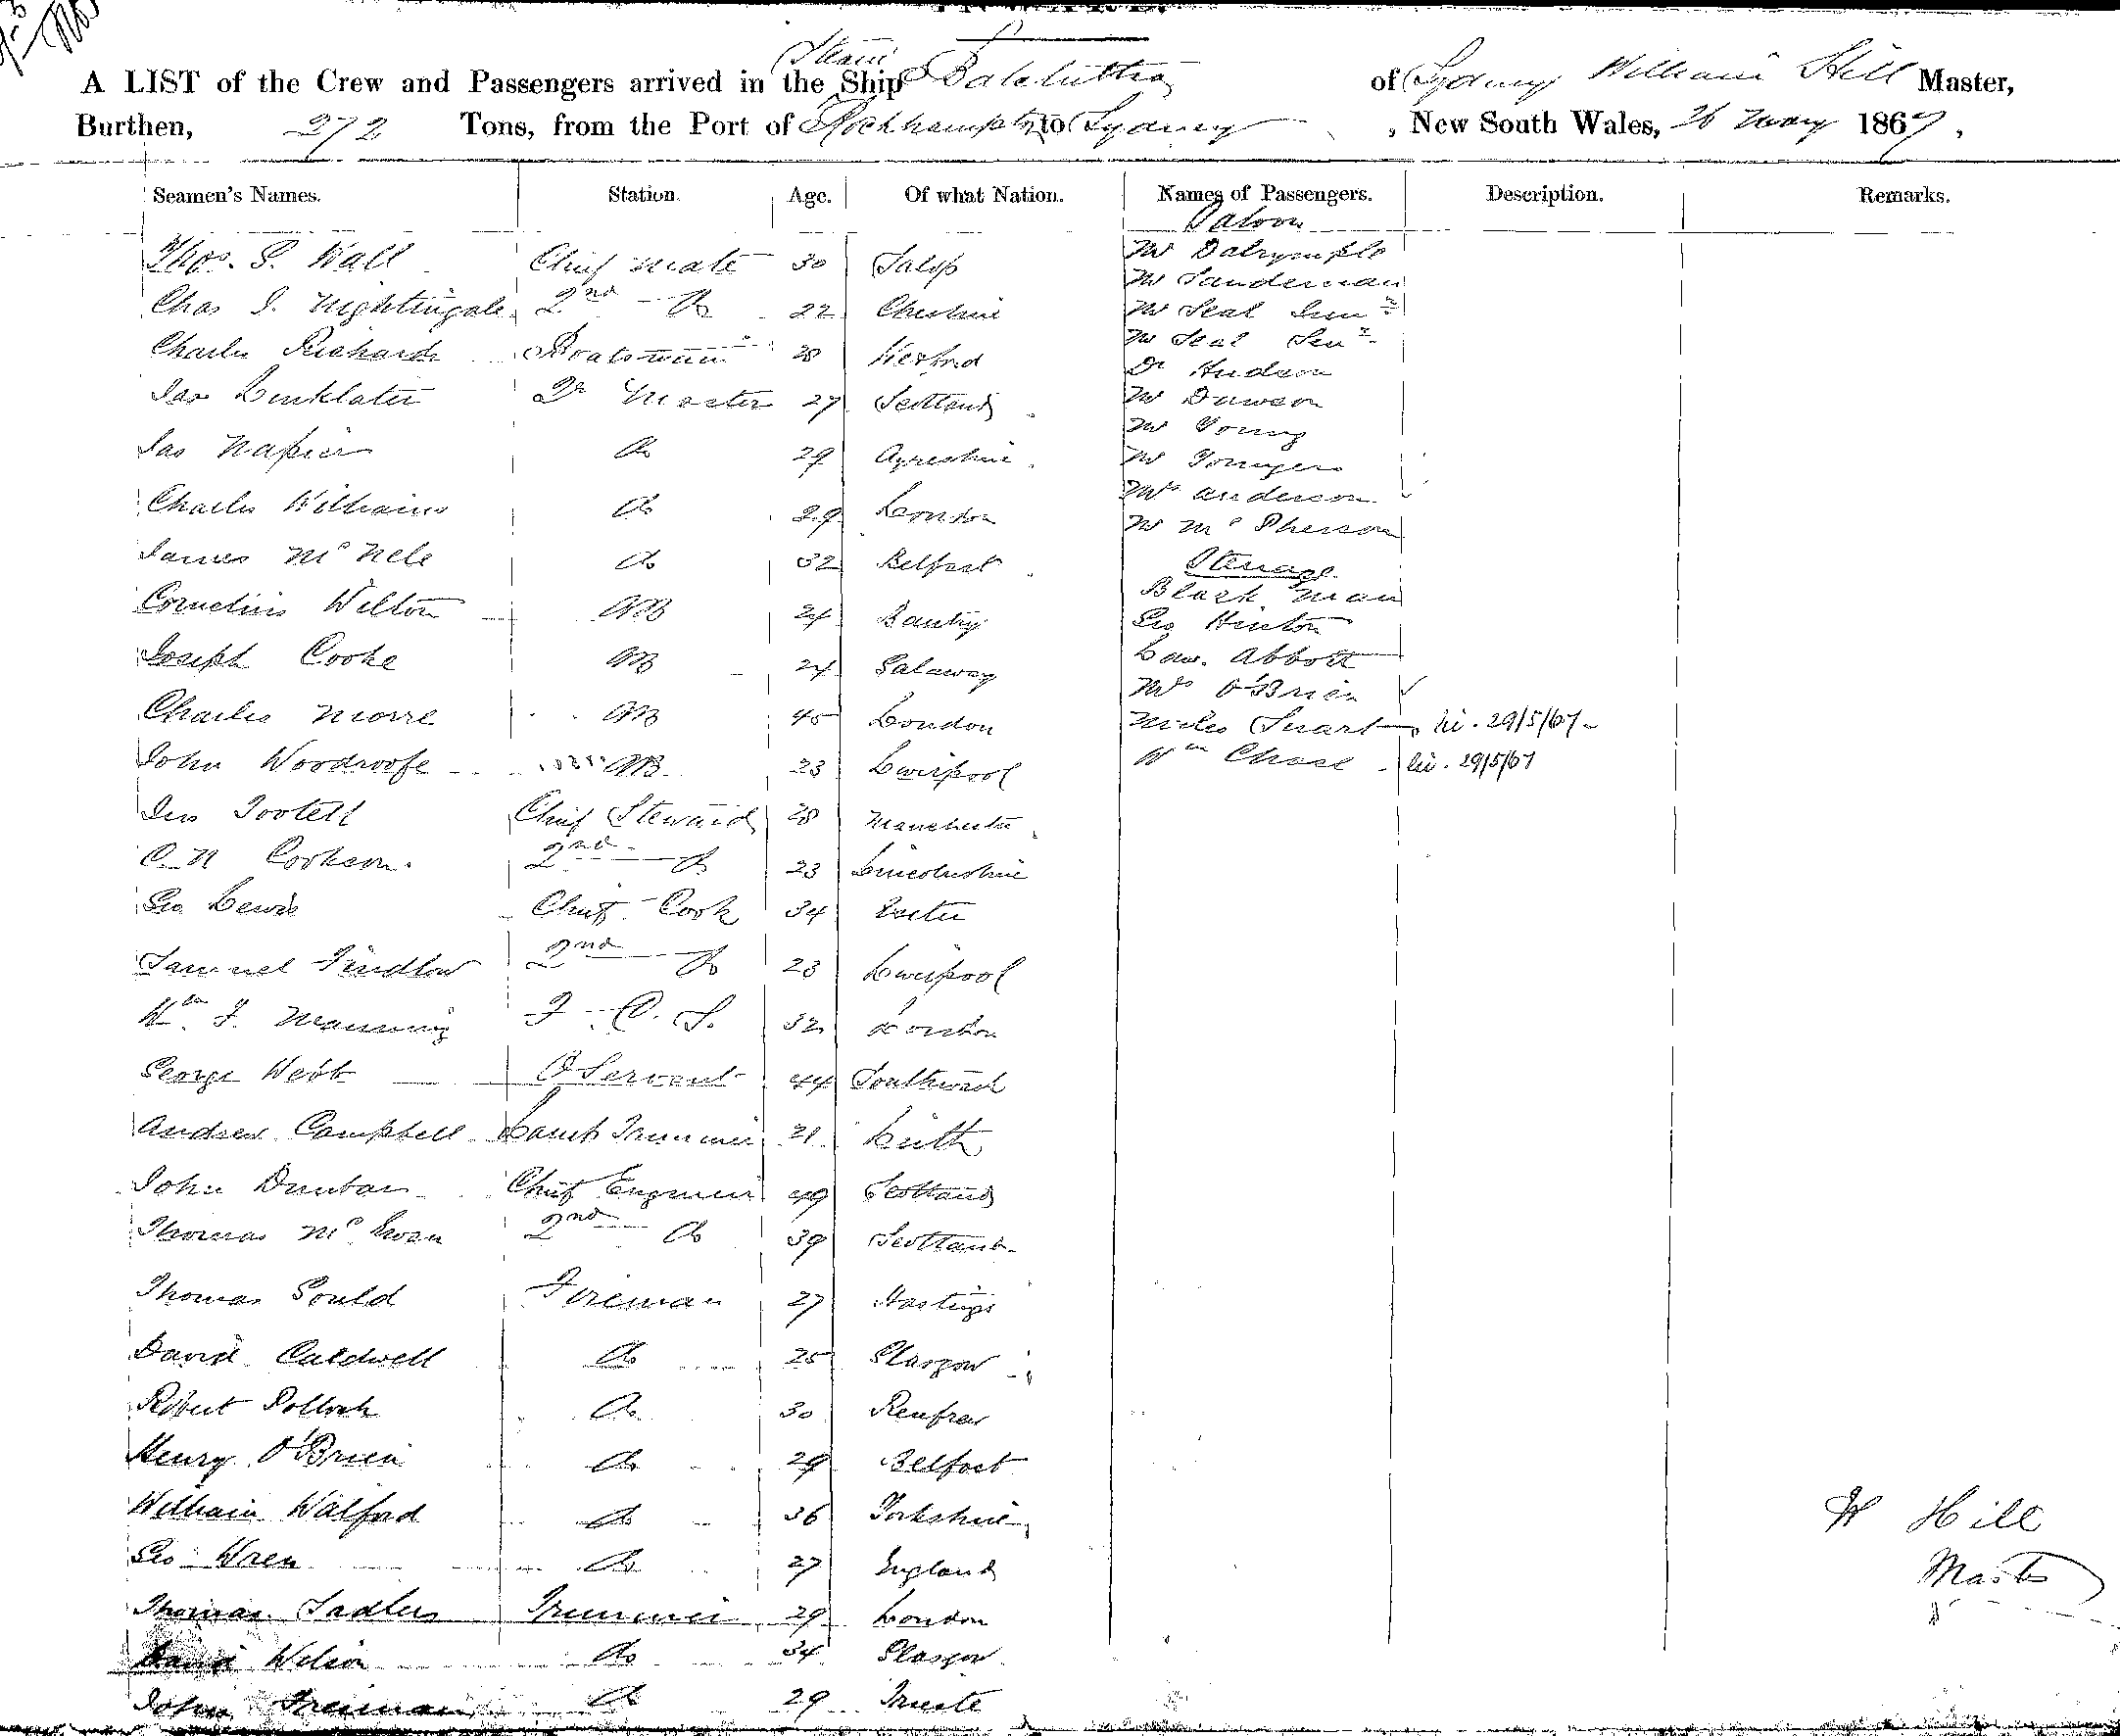 Steam
A LIST of the Crew and Passengers arrived in the Ship Balclutha of Sydney William Hill Master,
Burthen, 272 Tons, from the Port of Rockhampton to Sydney , New South Wales, 26 May 1867,
Seamen's Names. Station. Age. Of what Nation. Names of Passengers. Description. Remarks.
Saloon
Thos. S. Wall Chief Mate 30 Salop Mr Dalrymple
Mr Sandeman
Chas J. Nightingale 2nd Do 22 Cheshire Mr Seal Junr
Charles Richards Boatswain 28 Mr Seal Senr
Dr Hudson
Jas Linklater Qr Master 27 Scotland Mr Dawson
Mr Young
Jas Napier Do 29 Ayreshire Mr Youngers
Charles Williams Do 29 London Mrs Anderson
Mr McPherson
James McNele Do 32 Belfast Steerage
Black Man
Cornelius Welton AB 24 Bantry Geo Hinton
Joseph Cooke AB 24 Galaway Law. Abbott
Mrs O'Brien
Charles Moore AB 45 London Miles Suart liv. 29/5/67
John Woodroofe AB 23 Liverpool Wm Chase liv. 29/5/67
Jno Tootell Chief Steward 28 Manchester
C N Cookson 2nd Do 23 Lincolnshire
Geo Lewis Chief Cook 34 Exeter
Samuel Findlow 2nd Do 23 Liverpool
Wm J. Manning F. C. S. 32 London
George Webb O Servant 44 Southwark
Andrew Campbell Lamp Trimmer 21 Leith
John Dunbar Chief Engineer 49 Scotland
Thomas McEwan 2nd Do 39 Scotland
Thomas Gould Fireman 27 Hastings
David Caldwell Do 25 Glasgow
Robert Pollock Do 30 Renfrew
Henry O'Brien Do 29 Belfast
William Walford Do 36 Yorkshire
Geo Wren Do 27 England
Thomas Sadler Trimmer 29 London
David Wilson Do 34 Glasgow
John Freeman Do 29 Trieste
W Hill
Master